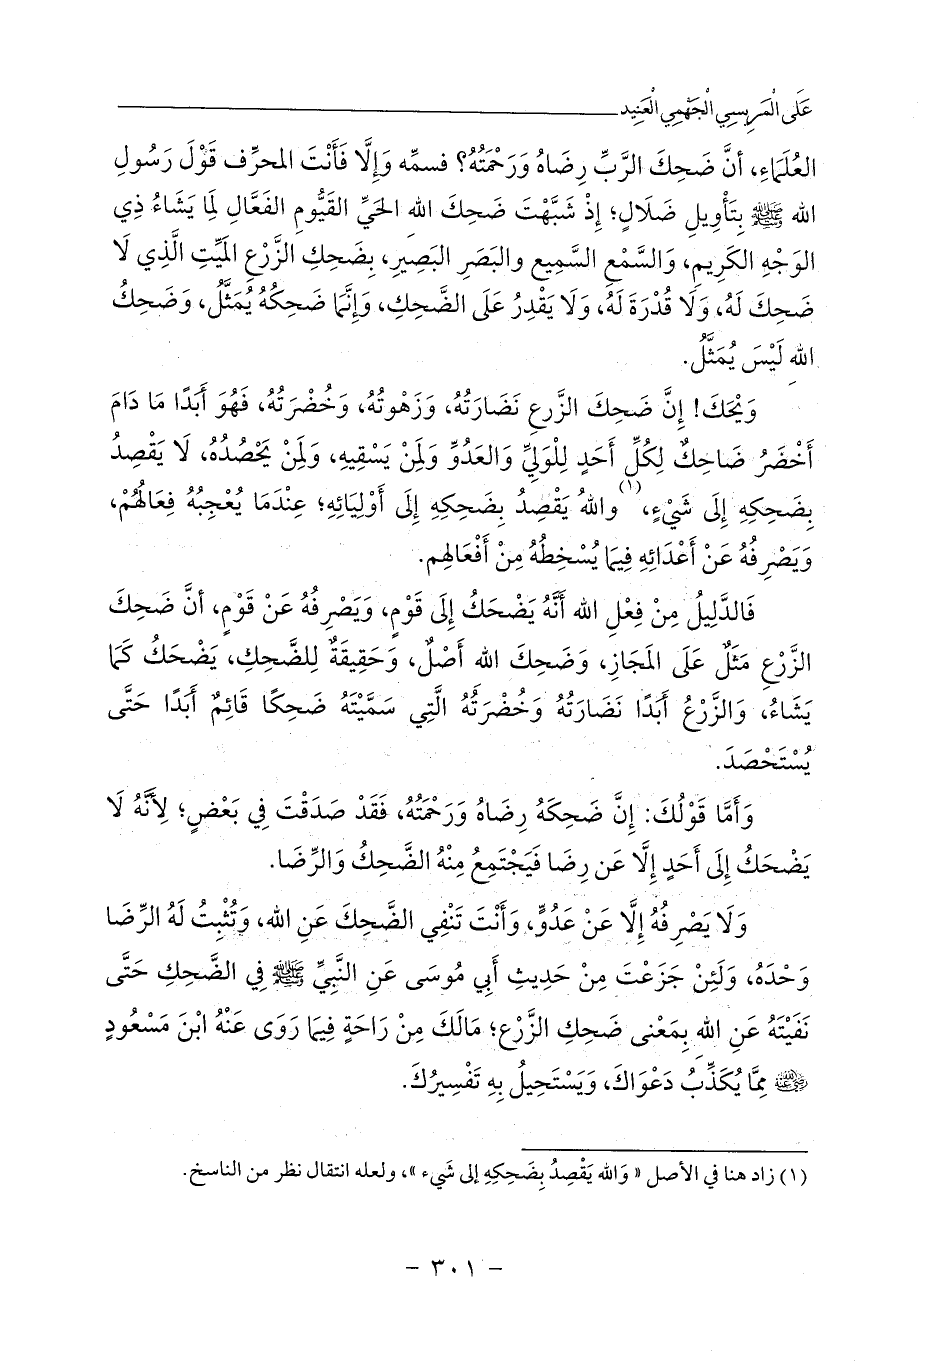 عَلَى الْمَرِيسِيِّ الْجَهْمِيِّ الْعَنِيد
العُلَمَاءِ، أَنَّ ضَحِكَ الرَّبِّ رِضَاهُ وَرَحْمَتُهُ؟ فسمِّه وَإِلَّا فَأَنْتَ المحرِّف قَوْلَ رَسُولِ
الله ﷺ بِتَأْوِيلِ ضَلَالٍ؛ إِذْ شَبَّهْتَ ضَحِكَ الله الحَيِّ القَيُّومِ الفَعَّالِ لِمَا يَشَاءُ ذِي
الوَجْهِ الكَرِيمِ، وَالسَّمْعِ السَّمِيعِ والبَصَرِ البَصِيرِ، بِضَحِكِ الزَّرْعِ المَيِّتِ الَّذِي لَا
ضَحِكَ لَهُ، وَلَا قُدْرَةَ لَهُ، وَلَا يَقْدِرُ عَلَى الضَّحِكِ، وَإِنَّمَا ضَحِكُهُ يُمَثَّلُ، وَضَحِكُ
الله لَيْسَ يُمَثَّلُ.
وَيْحَكَ! إِنَّ ضَحِكَ الزَّرعِ نَضَارَتُهُ، وَزَهْوتُهُ، وَخُضْرَتُهُ، فَهُوَ أَبَدًا مَا دَامَ
أَخْضَرُ ضَاحِكٌ لِكُلِّ أَحَدٍ لِلْوَلِيِّ وَالعَدُوِّ وَلِمَنْ يَسْقِيهِ، وَلِمَنْ يَحْصُدُهُ، لَا يَقْصِدُ
بِضَحِكِهِ إِلَى شَيْءٍ،(١) واللهُ يَقْصِدُ بِضَحِكِهِ إِلَى أَوْلِيَائِهِ؛ عِنْدَمَا يُعْجِبُهُ فِعَالُهُمْ،
وَيَصْرِفُهُ عَنْ أَعْدَائِهِ فِيمَا يُسْخِطُهُ مِنْ أَفْعَالِهِم.
فَالدَّلِيلُ مِنْ فِعْلِ الله أَنَّهُ يَضْحَكُ إِلَى قَوْمٍ، وَيَصْرِفُهُ عَنْ قَوْمٍ، أنَّ ضَحِكَ
الزَّرْعِ مَثَلٌ عَلَى المَجَازِ، وَضَحِكَ الله أَصْلٌ، وَحَقِيقَةٌ لِلضَّحِكِ، يَضْحَكُ كَمَا
يَشَاءُ، وَالزَّرْعُ أَبَدًا نَضَارَتُهُ وَخُضْرَتُهُ الَّتِي سَمَّيْتَهُ ضَحِكًا قَائِمٌ أَبَدًا حَتَّى
يُسْتَحْصَدَ.
وَأَمَّا قَوْلُكَ: إِنَّ ضَحِكَهُ رِضَاهُ وَرَحْمَتُهُ، فَقَدْ صَدَقْتَ فِي بَعْضٍ؛ لِأَنَّهُ لَا
يَضْحَكُ إِلَى أَحَدٍ إِلَّا عَن رِضَا فَيَجْتَمِعُ مِنْهُ الضَّحِكُ وَالرِّضَا.
وَلَا يَصْرِفُهُ إِلَّا عَنْ عَدُوٍّ، وَأَنْتَ تَنْفِي الضَّحِكَ عَنِ الله، وَتُثْبِتُ لَهُ الرِّضَا
وَحْدَهُ، وَلَئِنْ جَزَعْتَ مِنْ حَدِيثِ أَبِي مُوسَى عَنِ النَّبِيِّ ﷺ فِي الضَّحِكِ حَتَّى
نَفَيْتَهُ عَنِ الله بِمَعْنى ضَحِكِ الزَّرْعِ؛ مَالَكَ مِنْ رَاحَةٍ فِيمَا رَوَى عَنْهُ ابْنَ مَسْعُودٍ
رضي الله عنه مِمَّا يُكَذِّبُ دَعْوَاكَ، وَيَسْتَحِيلُ بِهِ تَفْسِيرُكَ.
(١) زاد هنا في الأصل « وَالله يَقْصِدُ بِضَحِكِهِ إلى شَيء »، ولعله انتقال نظر من الناسخ.
- ٣٠١ -